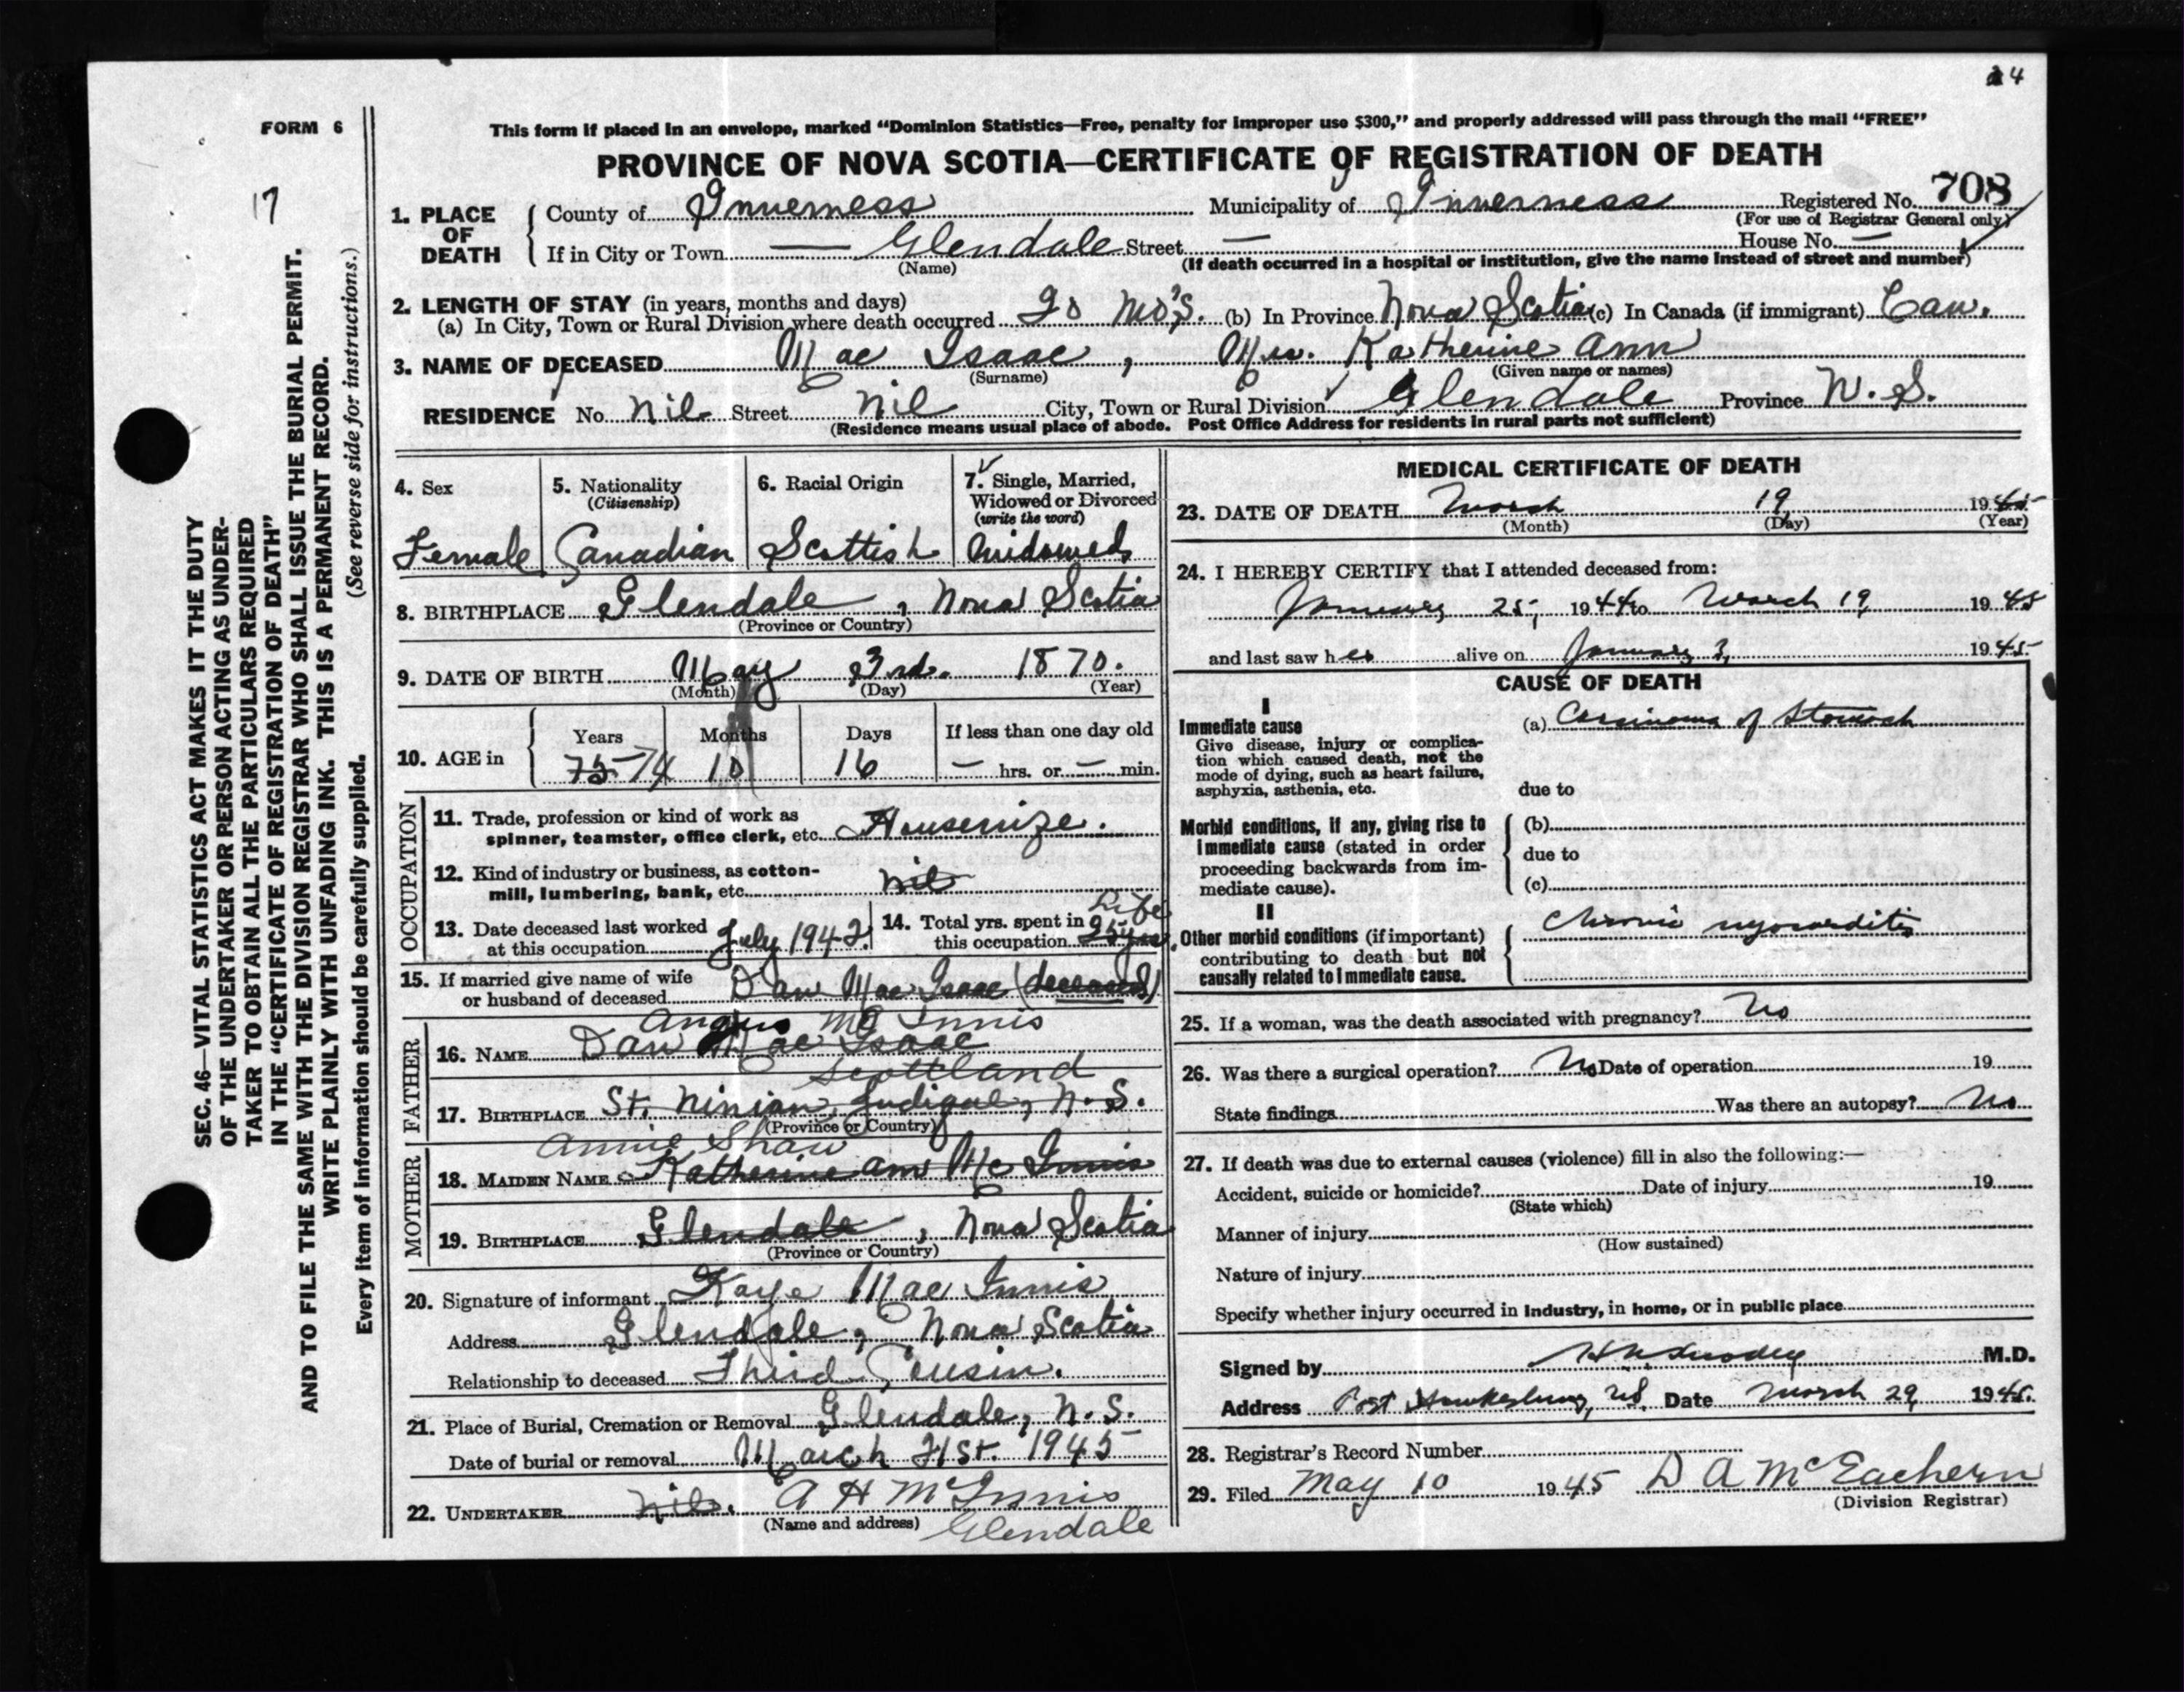 24
FORM 6
17
This form if placed in an envelope, marked “Dominion Statistics—Free, penalty for improper use $300,” and properly addressed will pass through the mail “FREE”
PROVINCE OF NOVA SCOTIA—CERTIFICATE OF REGISTRATION OF DEATH
Registered No. 708
(For use of Registrar General only)
1. PLACE OF DEATH County of Inverness Municipality of Inverness
If in City or Town — Glendale Street — House No. —
(Name) (If death occurred in a hospital or institution, give the name instead of street and number)
2. LENGTH OF STAY (in years, months and days)
(a) In City, Town or Rural Division where death occurred 20 Mo's. (b) In Province Nova Scotia (c) In Canada (if immigrant) Can.
3. NAME OF DECEASED Mac Isaac, Mrs. Katherine Ann
(Surname) (Given name or names)
RESIDENCE No. Nil Street Nil City, Town or Rural Division Glendale Province N.S.
(Residence means usual place of abode. Post Office Address for residents in rural parts not sufficient)
4. Sex Female
5. Nationality (Citizenship) Canadian
6. Racial Origin Scottish
7. Single, Married, Widowed or Divorced (write the word) Widowed
8. BIRTHPLACE Glendale, Nova Scotia
(Province or Country)
9. DATE OF BIRTH May 3rd. 1870.
(Month) (Day) (Year)
10. AGE in Years 75 74 Months 10 Days 16 If less than one day old — hrs. or — min.
OCCUPATION
11. Trade, profession or kind of work as spinner, teamster, office clerk, etc. Housewife.
12. Kind of industry or business, as cotton-mill, lumbering, bank, etc. nil
13. Date deceased last worked at this occupation July 1942.
14. Total yrs. spent in this occupation Life 25 yrs.
15. If married give name of wife or husband of deceased Dan Mac Isaac (deceased)
FATHER
Angus Mc Innis
16. NAME Dan Mac Isaac
Scottland
17. BIRTHPLACE St. Ninian, Judique, N.S.
(Province or Country)
MOTHER
Annie Shaw
18. MAIDEN NAME Katherine Ann Mc Innis
19. BIRTHPLACE Glendale, Nova Scotia
(Province or Country)
20. Signature of informant Kaye Mac Innis
Address Glendale, Nova Scotia
Relationship to deceased Third Cousin.
21. Place of Burial, Cremation or Removal Glendale, N.S.
Date of burial or removal March 21st. 1945
22. UNDERTAKER Nil. A H McInnis
(Name and address) Glendale
MEDICAL CERTIFICATE OF DEATH
23. DATE OF DEATH March 19 1945
(Month) (Day) (Year)
24. I HEREBY CERTIFY that I attended deceased from:
January 25, 1944 to March 19, 1945
and last saw her alive on January 3, 1945
CAUSE OF DEATH
I
Immediate cause
Give disease, injury or complication which caused death, not the mode of dying, such as heart failure, asphyxia, asthenia, etc.
(a) Carcinoma of Stomach
due to
Morbid conditions, if any, giving rise to immediate cause (stated in order proceeding backwards from immediate cause).
(b)
due to
(c)
II
Other morbid conditions (if important) contributing to death but not causally related to immediate cause.
Chronic myocarditis
25. If a woman, was the death associated with pregnancy? No
26. Was there a surgical operation? No Date of operation 19
State findings Was there an autopsy? No
27. If death was due to external causes (violence) fill in also the following:—
Accident, suicide or homicide? Date of injury 19
(State which)
Manner of injury
(How sustained)
Nature of injury
Specify whether injury occurred in industry, in home, or in public place
Signed by M.D.
Address Port Hawkesbury, NS. Date March 29, 1945.
28. Registrar's Record Number
29. Filed May 10 1945 D A McEachern
(Division Registrar)
SEC. 46—VITAL STATISTICS ACT MAKES IT THE DUTY
OF THE UNDERTAKER OR PERSON ACTING AS UNDER-
TAKER TO OBTAIN ALL THE PARTICULARS REQUIRED
IN THE “CERTIFICATE OF REGISTRATION OF DEATH”
AND TO FILE THE SAME WITH THE DIVISION REGISTRAR WHO SHALL ISSUE THE BURIAL PERMIT.
WRITE PLAINLY WITH UNFADING INK. THIS IS A PERMANENT RECORD.
Every item of information should be carefully supplied. (See reverse side for instructions.)